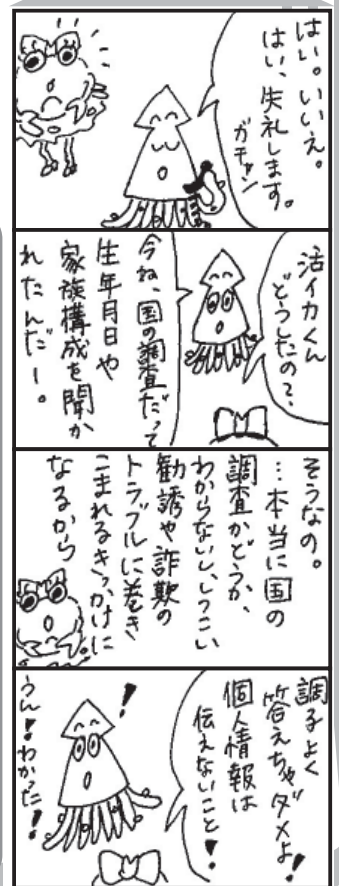 はい。いいえ。
はい、失礼します。
ガチャン
活イカくん
どうしたの?
今ね、国の調査だって
生年月日や
家族構成を聞か
れたんだー。
そうなの。
…本当に国の
調査かどうか、
わからないし、しつこい
勧誘や詐欺の
トラブルに巻き
こまれるきっかけに
なるから
調子よく
答えちゃダメよ!
個人情報は
伝えないこと!
!
うん!わかった!